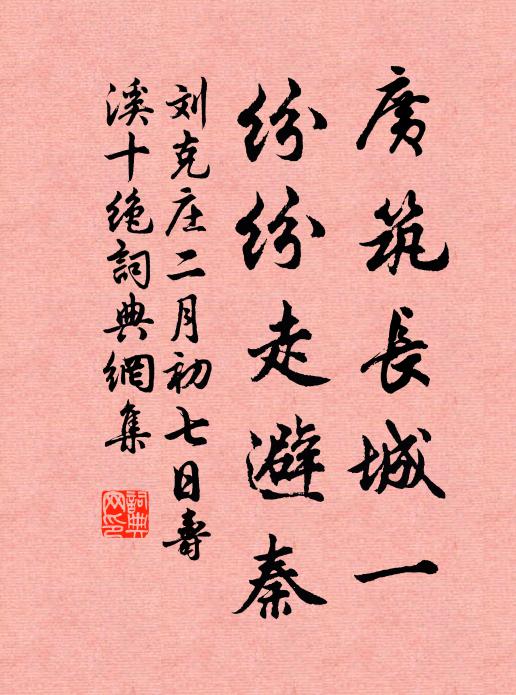 廣筑長城一
紛紛走避秦
刘克庄二月初七日壽
溪十绝詞典網集
詞典網印